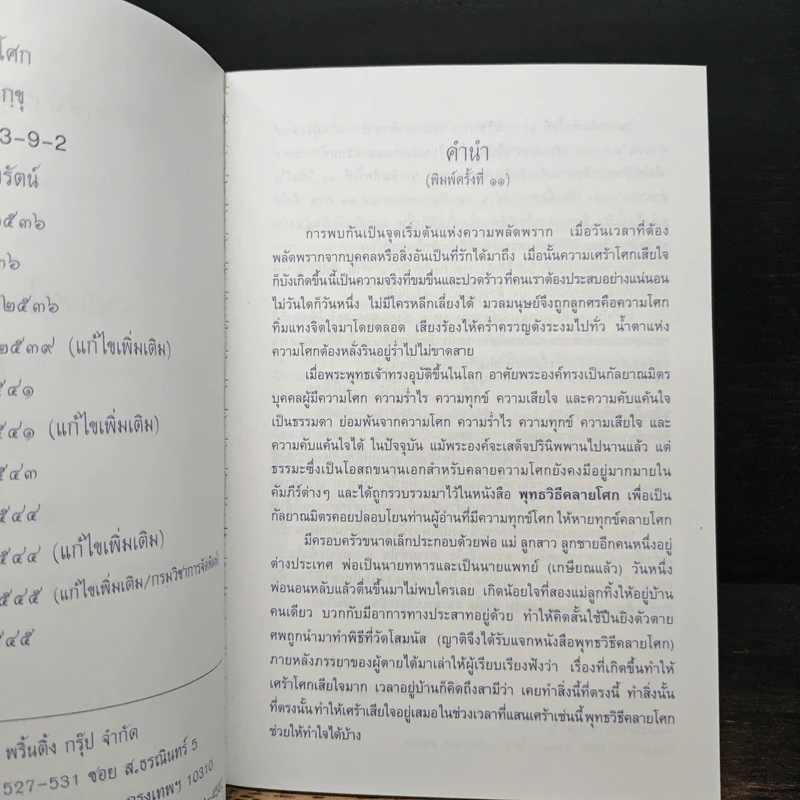 โศก
กฺขุ
3-9-2
รัตน์
๒๕๓๖
๓๖
๒๕๓๖
๒๕๓๙ (แก้ไขเพิ่มเติม)
๕๔๑
๕๔๑ (แก้ไขเพิ่มเติม)
๕๔๓
๕๔๔
๕๔๔ (แก้ไขเพิ่มเติม)
๕๔๕ (แก้ไขเพิ่มเติม/กรมวิชาการจัดพิมพ์)
๕๔๕
พริ้นติ้ง กรุ๊ป จำกัด
527-531 ซอย ส.ธรณินทร์ 5
กรุงเทพฯ 10310
คำนำ
(พิมพ์ครั้งที่ ๑๑)
การพบกันเป็นจุดเริ่มต้นแห่งความพลัดพราก เมื่อวันเวลาที่ต้อง
พลัดพรากจากบุคคลหรือสิ่งอันเป็นที่รักได้มาถึง เมื่อนั้นความเศร้าโศกเสียใจ
ก็บังเกิดขึ้นนี้เป็นความจริงที่ขมขื่นและปวดร้าวที่คนเราต้องประสบอย่างแน่นอน
ไม่วันใดก็วันหนึ่ง ไม่มีใครหลีกเลี่ยงได้ มวลมนุษย์จึงถูกลูกศรคือความโศก
ทิ่มแทงจิตใจมาโดยตลอด เสียงร้องไห้คร่ำครวญดังระงมไปทั่ว น้ำตาแห่ง
ความโศกต้องหลั่งรินอยู่ร่ำไปไม่ขาดสาย
เมื่อพระพุทธเจ้าทรงอุบัติขึ้นในโลก อาศัยพระองค์ทรงเป็นกัลยาณมิตร
บุคคลผู้มีความโศก ความร่ำไร ความทุกข์ ความเสียใจ และความคับแค้นใจ
เป็นธรรมดา ย่อมพ้นจากความโศก ความร่ำไร ความทุกข์ ความเสียใจ และ
ความคับแค้นใจได้ ในปัจจุบัน แม้พระองค์จะเสด็จปรินิพพานไปนานแล้ว แต่
ธรรมะซึ่งเป็นโอสถขนานเอกสำหรับคลายความโศกยังคงมีอยู่มากมายใน
คัมภีร์ต่างๆ และได้ถูกรวบรวมมาไว้ในหนังสือ พุทธวิธีคลายโศก เพื่อเป็น
กัลยาณมิตรคอยปลอบโยนท่านผู้อ่านที่มีความทุกข์โศก ให้หายทุกข์คลายโศก
มีครอบครัวขนาดเล็กประกอบด้วยพ่อ แม่ ลูกสาว ลูกชายอีกคนหนึ่งอยู่
ต่างประเทศ พ่อเป็นนายทหารและเป็นนายแพทย์ (เกษียณแล้ว) วันหนึ่ง
พ่อนอนหลับแล้วตื่นขึ้นมาไม่พบใครเลย เกิดน้อยใจที่สองแม่ลูกทิ้งให้อยู่บ้าน
คนเดียว บวกกับมีอาการทางประสาทอยู่ด้วย ทำให้คิดสั้นใช้ปืนยิงตัวตาย
ศพถูกนำมาทำพิธีที่วัดโสมนัส (ญาติจึงได้รับแจกหนังสือพุทธวิธีคลายโศก)
ภายหลังภรรยาของผู้ตายได้มาเล่าให้ผู้เรียบเรียงฟังว่า เรื่องที่เกิดขึ้นทำให้
เศร้าโศกเสียใจมาก เวลาอยู่บ้านก็คิดถึงสามีว่า เคยทำสิ่งนี้ที่ตรงนี้ ทำสิ่งนั้น
ที่ตรงนั้นทำให้เศร้าเสียใจอยู่เสมอในช่วงเวลาที่แสนเศร้าเช่นนี้ พุทธวิธีคลายโศก
ช่วยให้ทำใจได้บ้าง